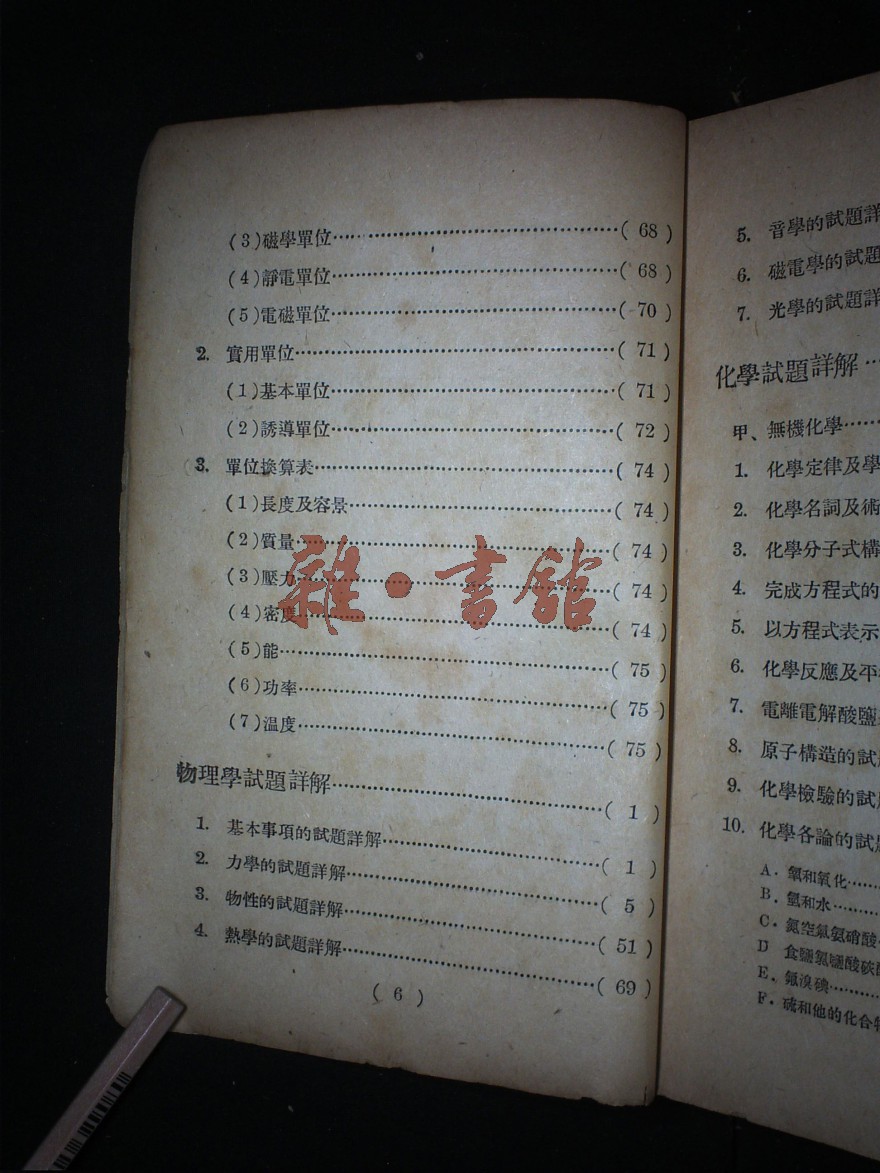 (3)磁學單位……(68)
(4)靜電單位……(68)
(5)電磁單位……(70)
2. 實用單位……(71)
(1)基本單位……(71)
(2)誘導單位……(72)
3. 單位換算表……(74)
(1)長度及容景……(74)
(2)質量……(74)
(3)壓力……(74)
(4)密度……(74)
(5)能……(75)
(6)功率……(75)
(7)温度……(75)
物理學試題詳解……(1)
1. 基本事項的試題詳解……(1)
2. 力學的試題詳解……(5)
3. 物性的試題詳解……(51)
4. 熱學的試題詳解……(69)
(6)
5. 音學的試題詳
6. 磁電學的試題
7. 光學的試題詳
化學試題詳解……
甲、無機化學……
1. 化學定律及學
2. 化學名詞及術
3. 化學分子式構
4. 完成方程式的
5. 以方程式表示
6. 化學反應及平
7. 電離電解酸鹽
8. 原子構造的試
9. 化學檢驗的試
10. 化學各論的試題
A. 氧和氧化……
B. 氫和水……
C. 氮空氣氨硝酸
D 食鹽氯鹽酸
E. 氟溴碘……
F. 硫和他的化合物
雜·書館